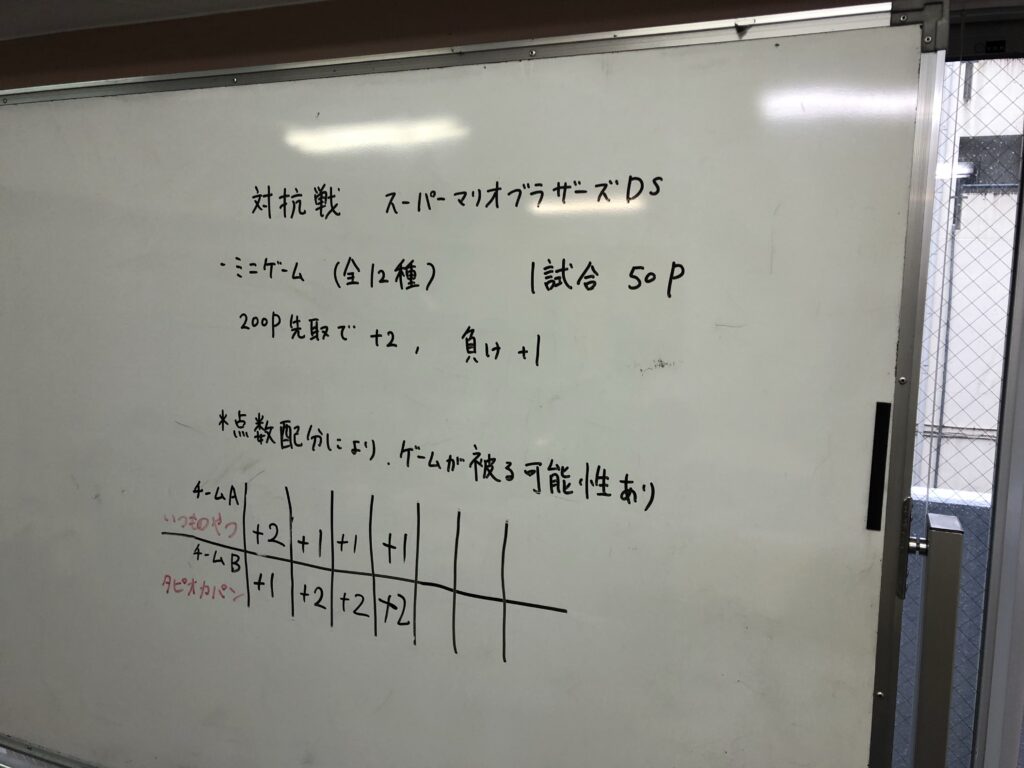 対抗戦 スーパーマリオブラザーズDS
・ミニゲーム (全12種) 1試合 50P
200P先取で +2, 負け +1
*点数配分により、ゲームが被る可能性あり
チームA
いつものやつ +2 +1 +1 +1
チームB
タピオカパン +1 +2 +2 +2